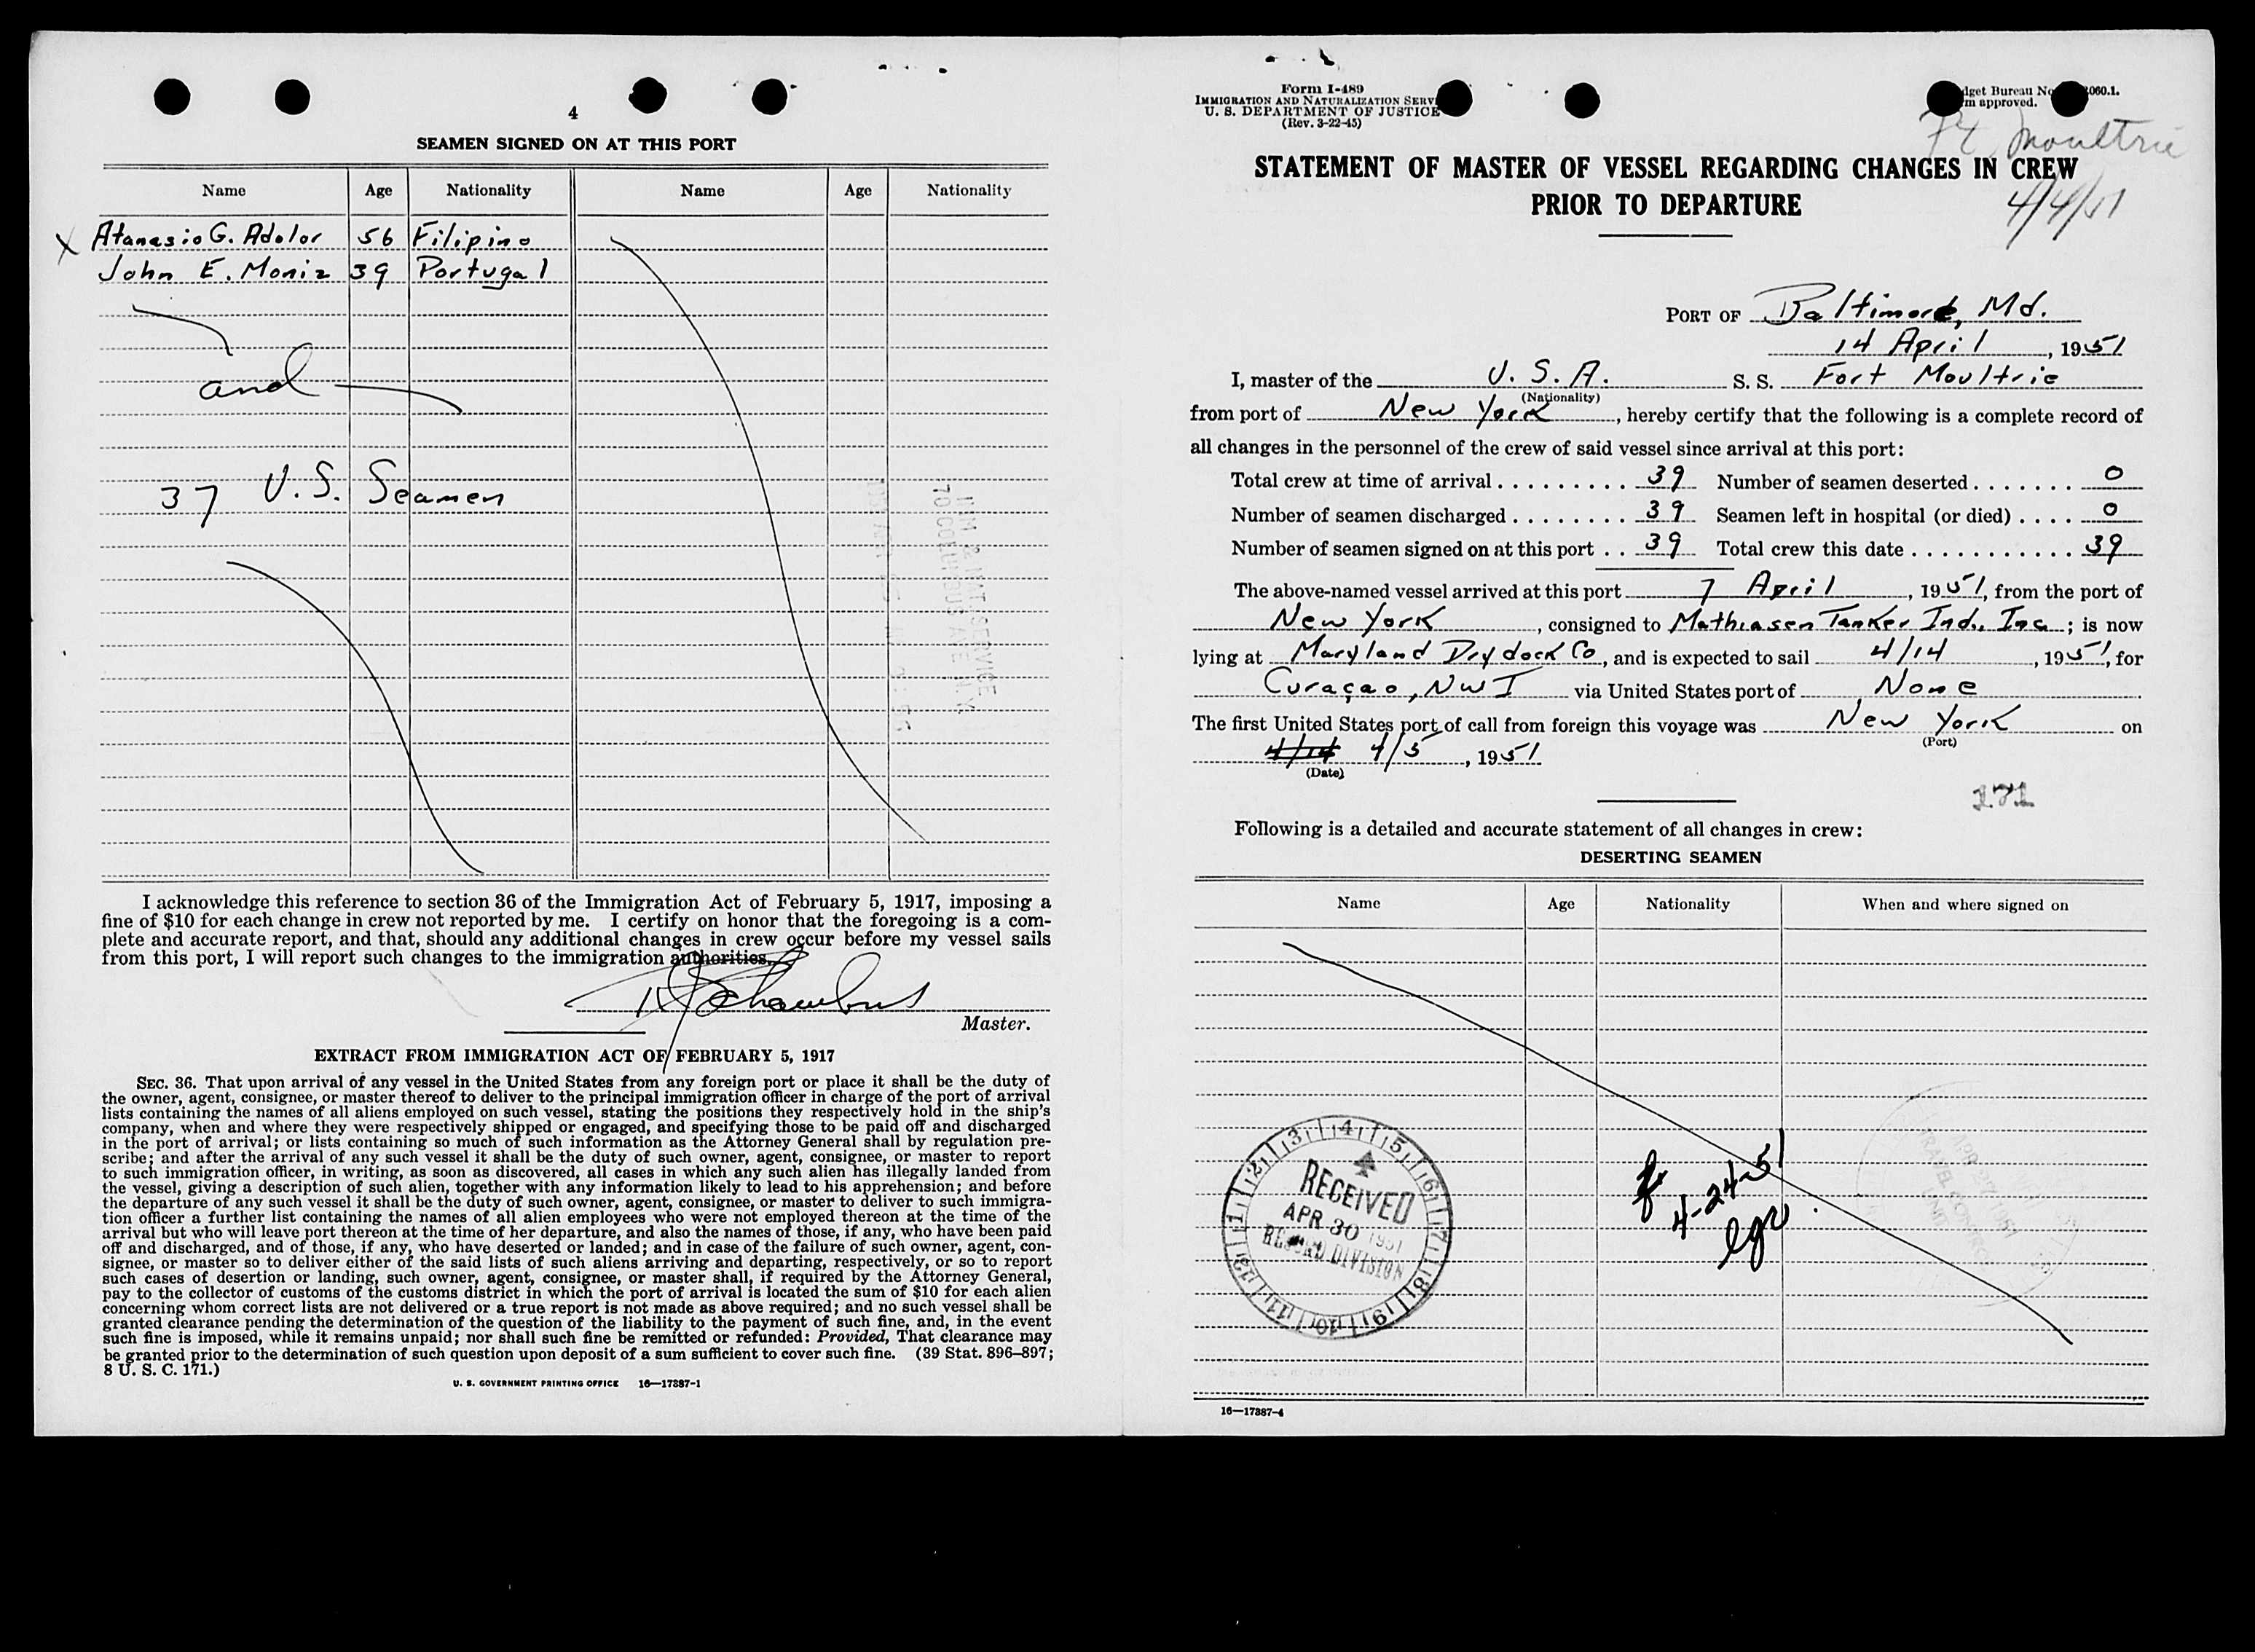 4
SEAMEN SIGNED ON AT THIS PORT
Name Age Nationality Name Age Nationality
X Atanasio G. Adolor 56 Filipino
John E. Moniz 39 Portugal
and
37 U.S. Seamen
IMM & NAT. SERVICE
70 COLUMBUS AVE N.Y.
I acknowledge this reference to section 36 of the Immigration Act of February 5, 1917, imposing a
fine of $10 for each change in crew not reported by me. I certify on honor that the foregoing is a com-
plete and accurate report, and that, should any additional changes in crew occur before my vessel sails
from this port, I will report such changes to the immigration authorities.
Master.
EXTRACT FROM IMMIGRATION ACT OF FEBRUARY 5, 1917
SEC. 36. That upon arrival of any vessel in the United States from any foreign port or place it shall be the duty of
the owner, agent, consignee, or master thereof to deliver to the principal immigration officer in charge of the port of arrival
lists containing the names of all aliens employed on such vessel, stating the positions they respectively hold in the ship's
company, when and where they were respectively shipped or engaged, and specifying those to be paid off and discharged
in the port of arrival; or lists containing so much of such information as the Attorney General shall by regulation pre-
scribe; and after the arrival of any such vessel it shall be the duty of such owner, agent, consignee, or master to report
to such immigration officer, in writing, as soon as discovered, all cases in which any such alien has illegally landed from
the vessel, giving a description of such alien, together with any information likely to lead to his apprehension; and before
the departure of any such vessel it shall be the duty of such owner, agent, consignee, or master to deliver to such immigra-
tion officer a further list containing the names of all alien employees who were not employed thereon at the time of the
arrival but who will leave port thereon at the time of her departure, and also the names of those, if any, who have been paid
off and discharged, and of those, if any, who have deserted or landed; and in case of the failure of such owner, agent, con-
signee, or master so to deliver either of the said lists of such aliens arriving and departing, respectively, or so to report
such cases of desertion or landing, such owner, agent, consignee, or master shall, if required by the Attorney General,
pay to the collector of customs of the customs district in which the port of arrival is located the sum of $10 for each alien
concerning whom correct lists are not delivered or a true report is not made as above required; and no such vessel shall be
granted clearance pending the determination of the question of the liability to the payment of such fine, and, in the event
such fine is imposed, while it remains unpaid; nor shall such fine be remitted or refunded: Provided, That clearance may
be granted prior to the determination of such question upon deposit of a sum sufficient to cover such fine. (39 Stat. 896–897;
8 U. S. C. 171.)
U. S. GOVERNMENT PRINTING OFFICE 16—17387-1
Form I-489
IMMIGRATION AND NATURALIZATION SERV
U. S. DEPARTMENT OF JUSTICE
(Rev. 3-22-45)
dget Bureau No 060.1.
m approved.
Ft Moultrie
STATEMENT OF MASTER OF VESSEL REGARDING CHANGES IN CREW
PRIOR TO DEPARTURE
4/4/51
PORT OF Baltimore, Md.
14 April, 1951
I, master of the U. S. A. S. S. Fort Moultrie
(Nationality)
from port of New York, hereby certify that the following is a complete record of
all changes in the personnel of the crew of said vessel since arrival at this port:
Total crew at time of arrival . . . . . . . . . 39 Number of seamen deserted . . . . . . . 0
Number of seamen discharged . . . . . . . . 39 Seamen left in hospital (or died) . . . . 0
Number of seamen signed on at this port . . 39 Total crew this date . . . . . . . . . . . 39
The above-named vessel arrived at this port 7 April, 1951, from the port of
New York, consigned to Mathiasen Tanker Ind., Inc.; is now
lying at Maryland Drydock Co, and is expected to sail 4/14, 1951, for
Curaçao, NWI via United States port of None
The first United States port of call from foreign this voyage was New York on
(Port)
4/14 4/5, 1951
(Date)
171
Following is a detailed and accurate statement of all changes in crew:
DESERTING SEAMEN
Name Age Nationality When and where signed on
RECEIVED
APR 30 1951
RECORD DIVISION
4-24-51
APR 27 1951
TRAVEL CONTROL
UNIT
16—17387-4